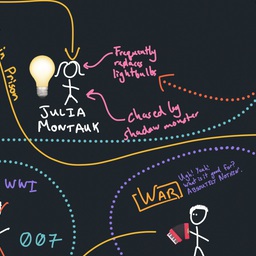 in Prison
Frequently
replaces
lightbulbs
JULIA
MONTAUK
chased by
shadow monster
WWI
007
[WAR]
Ugh! Yeah!
What is it good for?
Absolutely Nothin'.